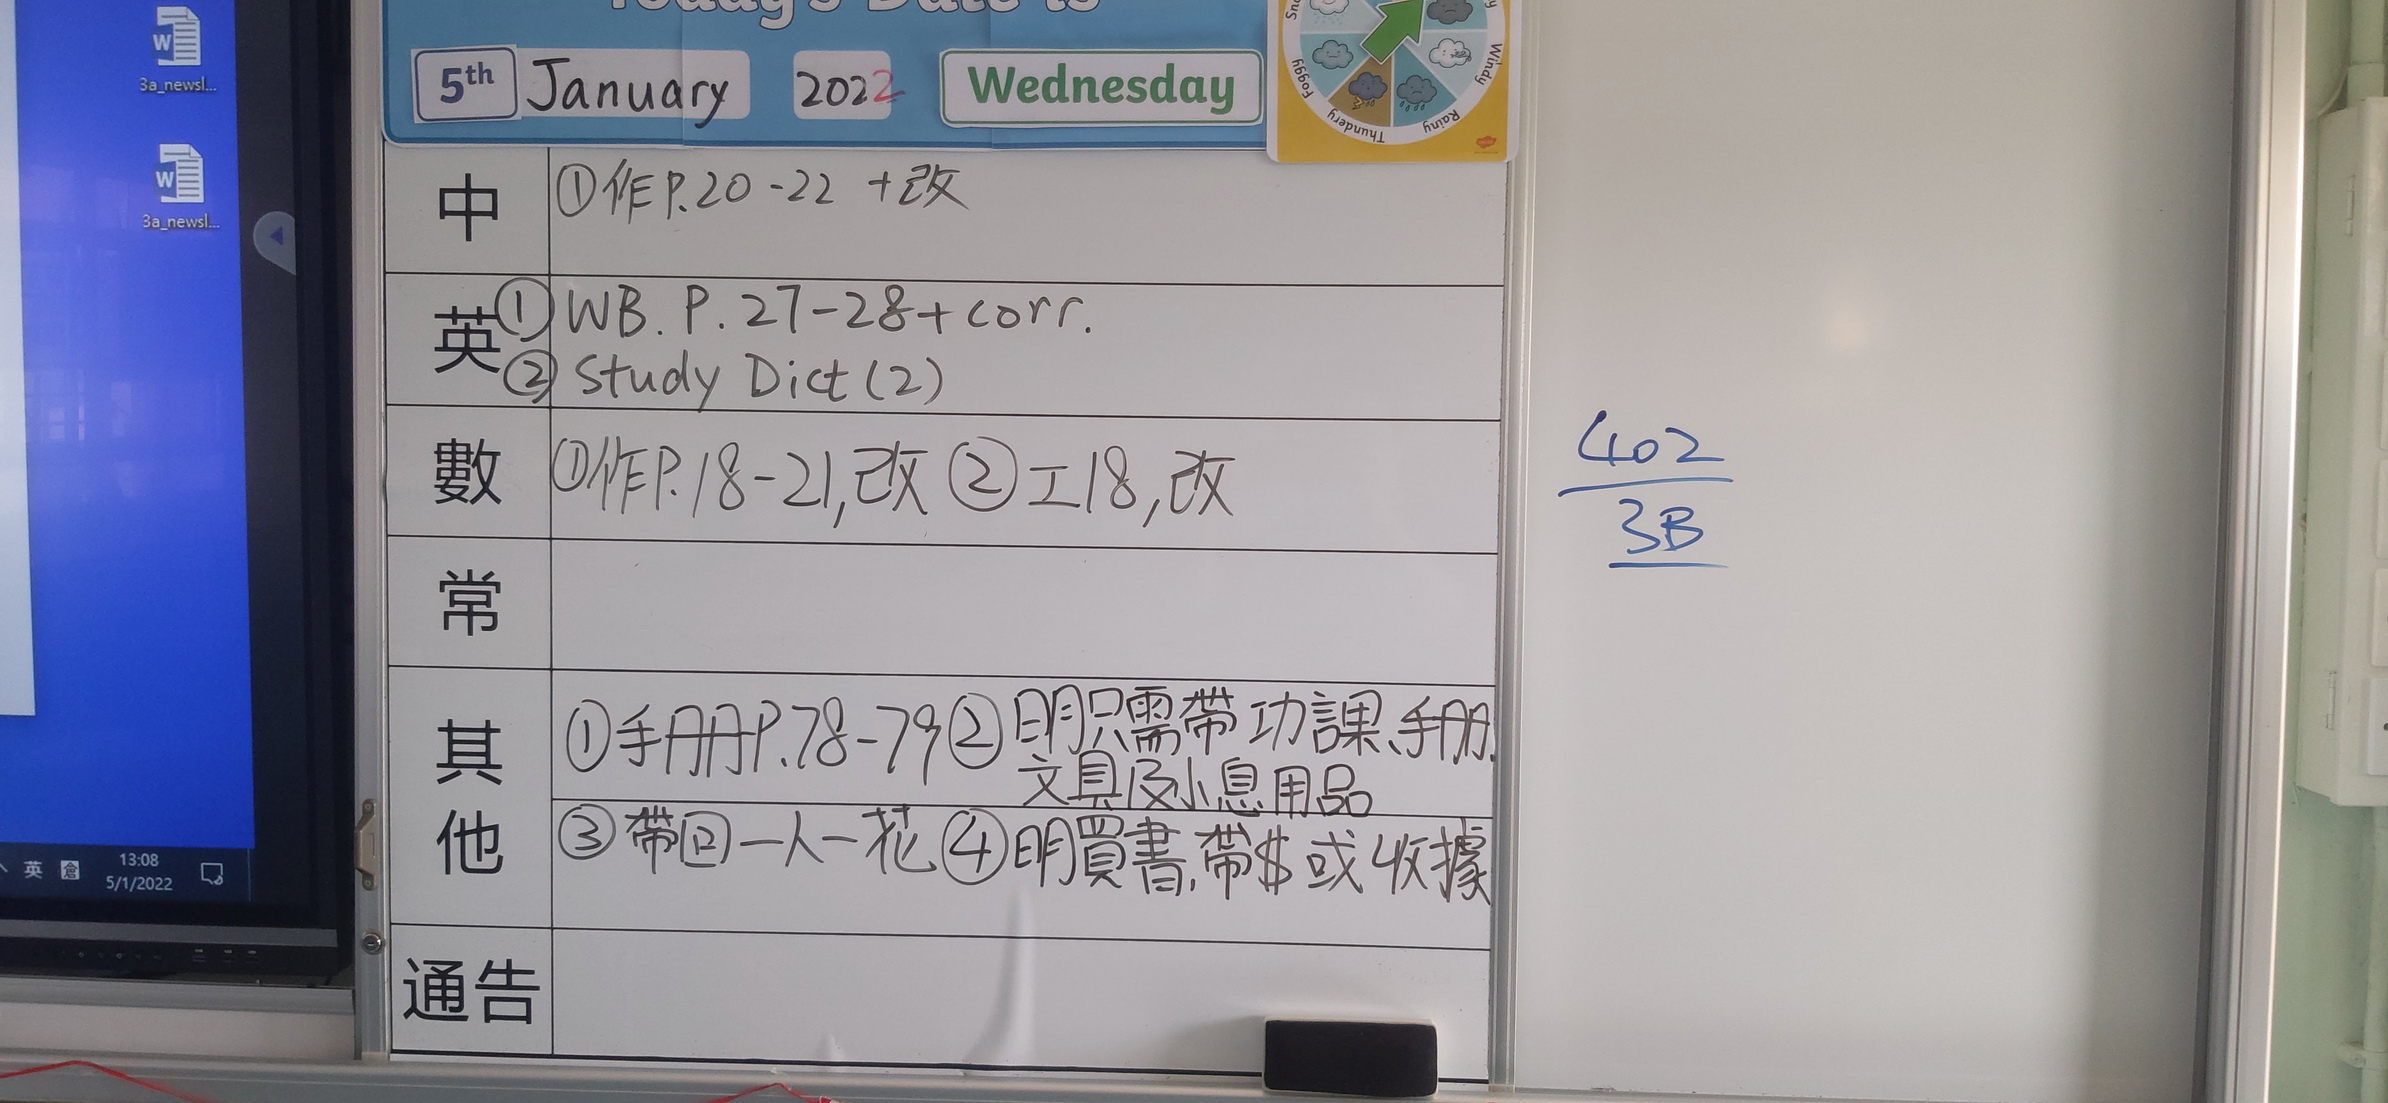 Today's Date is
5th January 2022 Wednesday
Foggy
Thundery
Rainy
Windy
3a_newsl...
3a_newsl...
中 ①作P.20-22 +改
英 ① WB. P. 27-28+corr.
② Study Dict (2)
數 ①作P.18-21,改 ②工18,改
常
其他 ①手册P.78-79 ②明只需帶功課、手册、
文具及小息用品
③帶回一人一花 ④明買書,帶$或收據
通告
402
3B
英 倉 13:08
5/1/2022